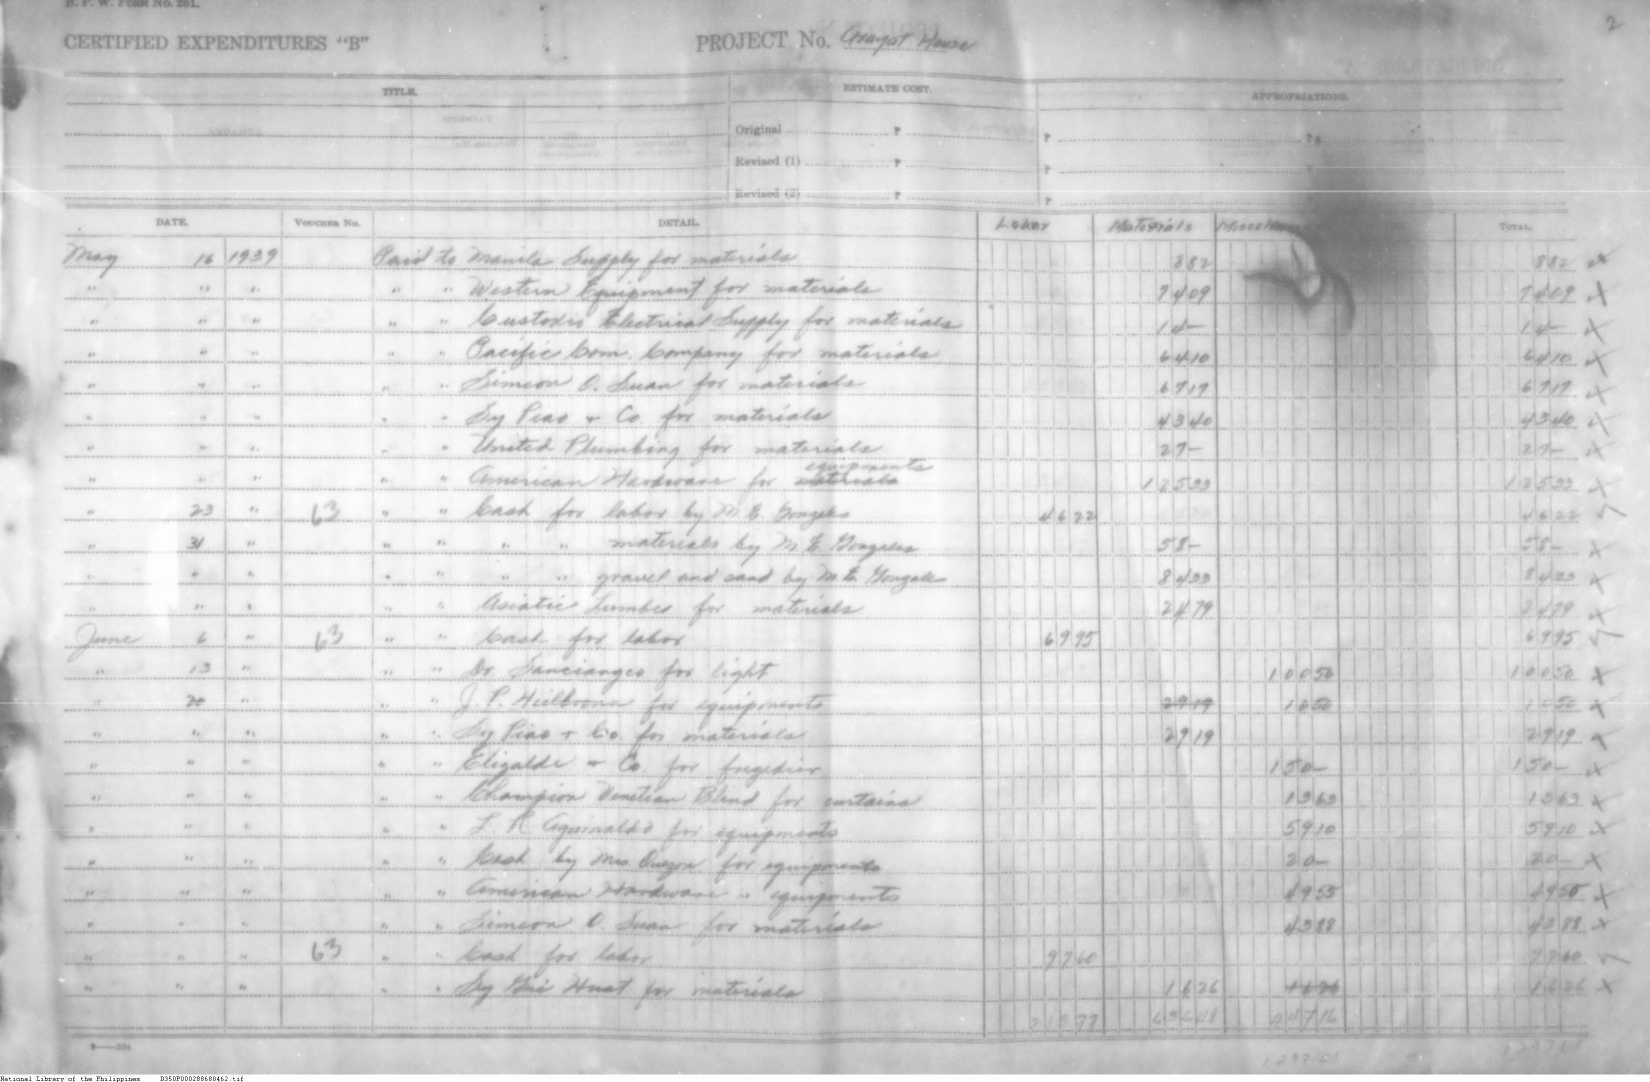 B. P. W. FORM NO. 201.
2
CERTIFIED EXPENDITURES "B"
PROJECT No. House
TITLE.
ESTIMATE COST.
APPROPRIATIONS.
Original ₱ ₱ ₱
Revised (1) ₱ ₱
Revised (2) ₱ ₱
DATE. VOUCHER No. DETAIL. Labor Materials TOTAL.
May 16 1939 Paid to Manila Supply for materials 882 882 x
" " " " " Western Equipment for materials 7409 7409 x
" " " " " Electrical Supply for materials 14— 14— x
" " " " " Pacific Com. Company for materials 6410 6410 x
" " " " " Simeon O. Suan for materials 6719 6719 x
" " " " " Sy Piao & Co for materials 4340 4340 x
" " " " " United Plumbing for materials 27— 27— x
" " " " " American Hardware for equipments 12533 12533 x
" 23 " 63 " " Cash for labor by M. E. Gonzales 4622 4622 ✓
" 31 " " " " " materials by M. E. Gonzales 58— 58— x
" " " " " " " gravel and sand by M. E. Gonzales 8433 8433 x
" " " " " Asiatic Lumber for materials 2479 2479 x
June 6 " 63 " " Cash for labor 6995 6995 ✓
" 13 " " " Dr. Sanciangco for light 10050 10050 x
" 20 " " " J. P. Heilbronn for equipments 2919 1050 1050 x
" " " " " Sy Piao & Co. for materials 2919 2919 x
" " " " " Elizalde & Co. for 150— 150— x
" " " " " Champion Venetian Blind for curtains 1363 1363 x
" " " " " L. R. Aguinaldo for equipments 5910 5910 x
" " " " " Cash by Mrs. Quezon for equipments 20— 20— x
" " " " " American Hardware " equipments 4955 4955 x
" " " " " Simeon O. Suan for materials 4388 4388 x
" " " 63 " " Cash for labor 9760 9760 ✓
" " " " " Sy Huat for materials 1626 1626 1626 x
21377 44716
National Library of the Philippines D350P000288680462.tif